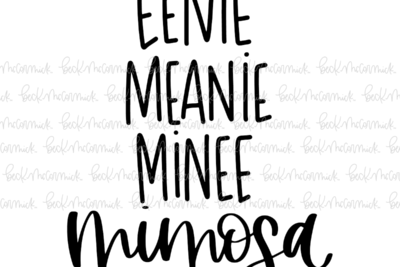 EENIE
MEANIE
MINEE
mimosa